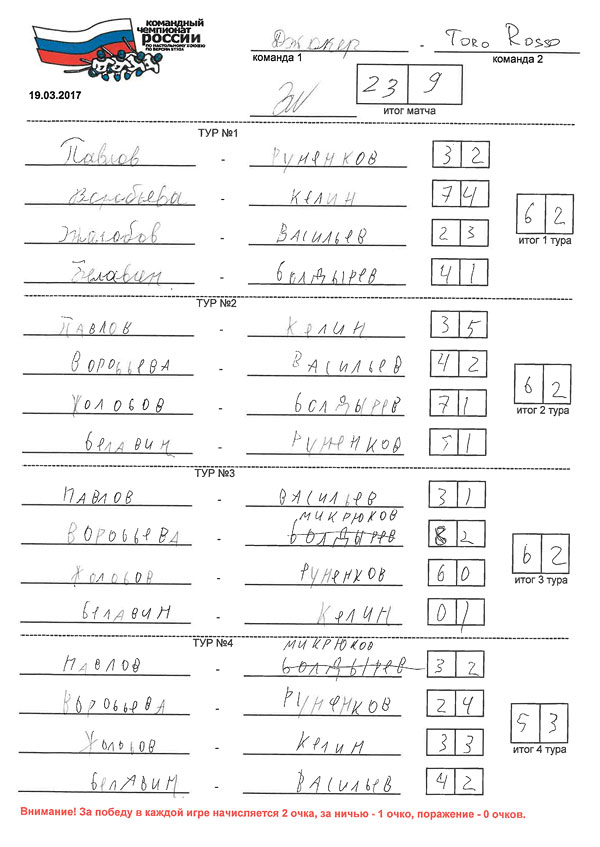 КОМАНДНЫЙ
ЧЕМПИОНАТ
РОССИИ
ПО НАСТОЛЬНОМУ ХОККЕЮ
ПО ВЕРСИИ STIGA
Джокер - Toro Rosso
команда 1 команда 2
19.03.2017
23 9
итог матча
ТУР №1
Павлов - Руненков 3 2
Воробьева - Келин 7 4
Жолобов - Васильев 2 3
Белавин - Болдырев 4 1
6 2
итог 1 тура
ТУР №2
Павлов - Келин 3 5
Воробьева - Васильев 4 2
Жолобов - Болдырев 7 1
Белавин - Руненков 5 1
6 2
итог 2 тура
ТУР №3
Павлов - Васильев 3 1
Микрюков
Воробьева - Болдырев 8 2
Жолобов - Руненков 6 0
Белавин - Келин 0 1
6 2
итог 3 тура
ТУР №4
Микрюков
Павлов - Болдырев 3 2
Воробьева - Руненков 2 4
Жолобов - Келин 3 3
Белавин - Васильев 4 2
5 3
итог 4 тура
Внимание! За победу в каждой игре начисляется 2 очка, за ничью - 1 очко, поражение - 0 очков.